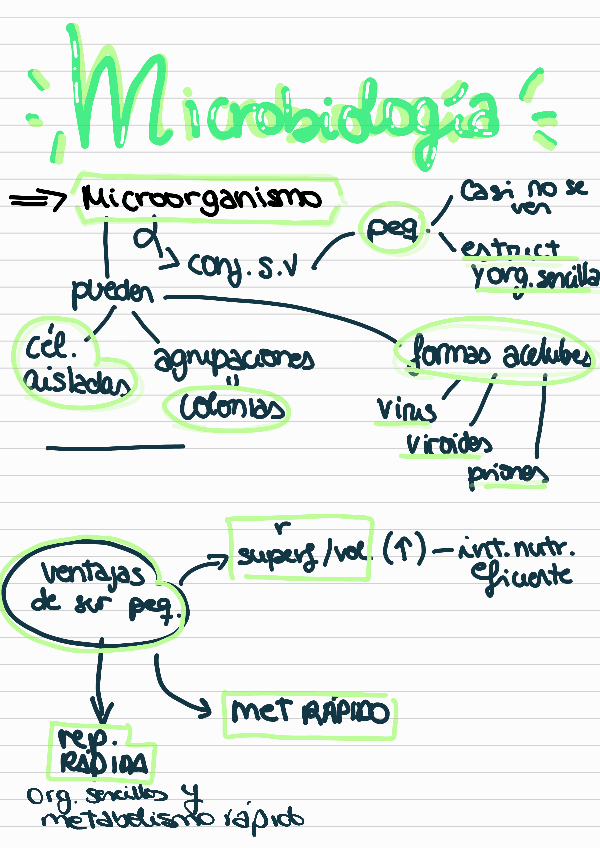 Microbiología
=> Microorganismo
casi no se
ven
peq.
conj. s.v
estruct
y org. sencilla
pueden
cél.
aisladas
agrupaciones
=
colonias
formas acelulares
virus
viroides
priones
r
superf/vol. (↑) — int. nutr.
eficiente
ventajas
de ser peq.
met RÁPIDO
rep.
RÁPIDA
org. sencillos y
metabolismo rápido